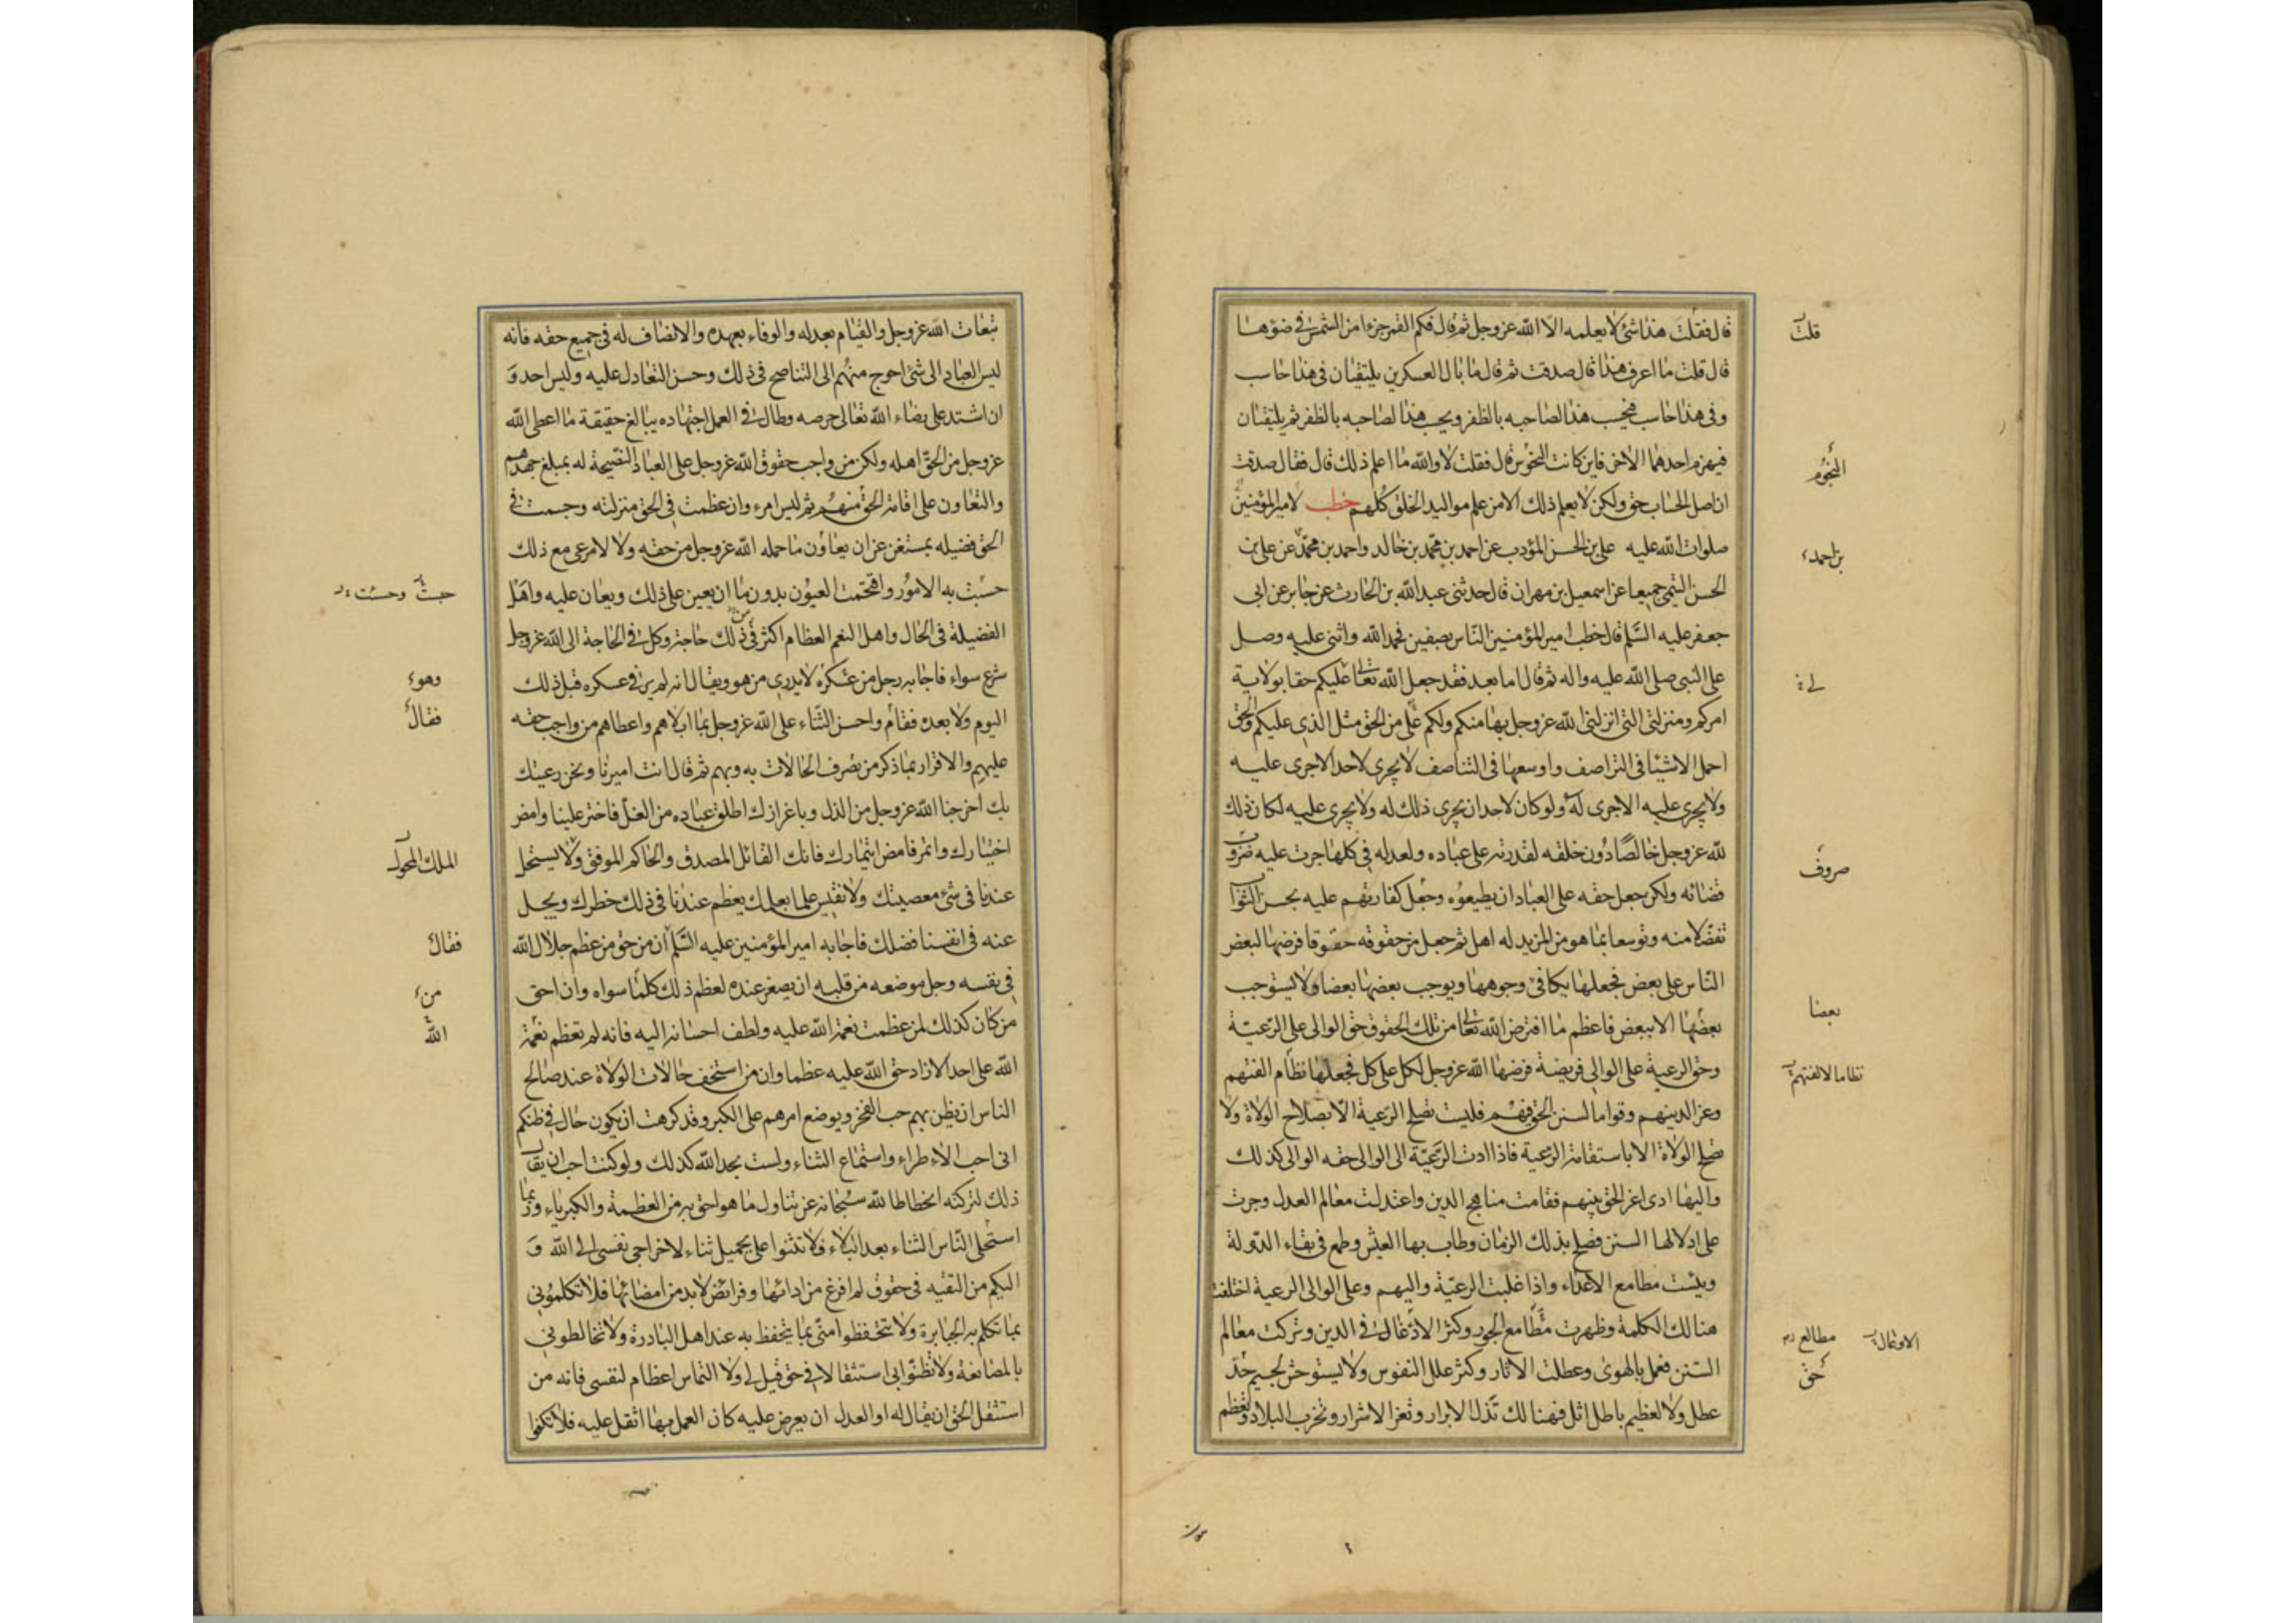 قال فقلت هذا شئ لا يعلمه الا الله عز وجل ثم قال فكم القمر جزءا من الشمس في ضوءها
قال قلت ما اعرف هذا قال صدقت ثم قال ما بال العسكرين يلتقيان في هذا حاسب
وفي هذا حاسب فيحسب هذا لصاحبه بالظفر ويحسب هذا لصاحبه بالظفر ثم يلتقيان
فيهزم احدهما الاخر فاين كانت النحوس قال فقلت لا والله ما اعلم ذلك قال فقال صدقت
ان اصل الحساب حق ولكن لا يعلم ذلك الا من علم مواليد الخلق كلهم خطب لامير المؤمنين
صلوات الله عليه علي بن الحسن المؤدب عن احمد بن محمد بن خالد واحمد بن محمد عن علي بن
الحسن التيمي جميعا عن اسمعيل بن مهران قال حدثني عبد الله بن الحارث عن جابر عن ابي
جعفر عليه السلم قال خطب امير المؤمنين الناس بصفين فحمد الله واثنى عليه وصل
على النبي صلى الله عليه واله ثم قال اما بعد فقد جعل الله تعالى عليكم حقا بولاية
امركم ومنزلتي التي انزلني الله عز وجل بها منكم ولكم علي من الحق مثل الذي عليكم والحق
اجمل الاشيا في التراصف واوسعها في التناصف لا يجري لاحد الا جرى عليه
ولا يجري عليه الا جرى له ولو كان لاحد ان يجري ذلك له ولا يجري عليه لكان ذلك
لله عز وجل خالصا دون خلقه لقدرته على عباده ولعدله في كلما جرت عليه ضروب
قضائه ولكن جعل حقه على العباد ان يطيعوه وجعل كفارتهم عليه بحسن الثواب
تفضلا منه وتوسعا بما هو من المزيد له اهل ثم جعل من حقوقه حقوقا فرضها لبعض
الناس على بعض فجعلها يكافئ وجوهها ويوجب بعضها بعضا ولا يستوجب
بعضها الا ببعض فاعظم ما افترض الله تعالى من تلك الحقوق حق الوالي على الرعية
وحق الرعية على الوالي فريضة فرضها الله عز وجل لكل على كل فجعلها نظام الفتهم
وعز الدينهم وقواما لسنن الحق فيهم فليست تصلح الرعية الا بصلاح الولاة ولا
تصلح الولاة الا باستقامة الرعية فاذا ادت الرعية الى الوالي حقه الوالي كذلك
واليها ادى اعز الحق بينهم فقامت مناهج الدين واعتدلت معالم العدل وجرت
على اذلالها السنن فصلح بذلك الزمان وطاب بها العيش وطمع في بقاء الدولة
ويئست مطامع الاعداء واذا غلبت الرعية واليهم وعلى الوالي الرعية اختلفت
هنالك الكلمة وظهرت مطامع الجور وكثر الادغال في الدين وتركت معالم
السنن فعمل بالهوى وعطلت الاثار وكثر علل النفوس ولا يستوحش لجسيم حد
عطل ولا لعظيم باطل اثل فهنالك تذل الابرار وتعز الاشرار وتخرب البلاد وتعظم
قلت
النجوم
بن احمد
لي
صروف
بعضا
نظاما لالفتهم
مطالع
الاوغال
حق
تبعات الله عز وجل والقيام بعدله والوفاء بعهده والانصاف له في جميع حقه فانه
ليس العباد الى شئ احوج منهم الى التناصح في ذلك وحسن التعادل عليه وليس احد و
ان اشتد على رضاء الله تعالى حرصه وطال في العمل اجتهاده ببالغ حقيقة ما اعطى الله
عز وجل من الحق اهله ولكن من واجب حقوق الله عز وجل على العباد النصيحة له بمبلغ جهدهم
والتعاون على اقامة الحق منهم ثم ليس امرء وان عظمت في الحق منزلته وجسمت في
الحق فضيله بمستغن عن ان يعاون ما حمله الله عز وجل من حقه ولا لامرئ مع ذلك
حسبت به الامور واقتحمت العيون بدون ما ان يعين على ذلك ويعان عليه واهل
الفضيلة في الحال واهل النعم العظام اكثر في ذلك حاجة وكل في الحاجة الى الله عز وجل
شرع سواء فاجابه رجل من عسكره لا يدرى من هو ويقال انه لم ير في عسكره قبل ذلك
اليوم ولا بعده فقام واحسن الثناء على الله عز وجل بما ابلاهم واعطاهم من واجب حقه
عليهم والاقرار بما ذكر من تصرف الحالات به وبهم ثم قال انت اميرنا ونحن رعيتك
بك اخرجنا الله عز وجل من الذل وباعزازك اطلق عباده من الغل فاختر علينا وامض
اختيارك وائتمر فامض ايتمارك فانك القائل المصدق والحاكم الموفق ولا يستحل
عندنا في شئ معصيتك ولا نقيس علما بعلمك يعظم عندنا في ذلك خطرك ويجل
عنه في انفسنا فضلك فاجابه امير المؤمنين عليه السلم ان من حق من عظم جلال الله
في نفسه وجل موضعه من قلبه ان يصغر عنده لعظم ذلك كلما سواه وان احق
من كان كذلك لمن عظمت نعمة الله عليه ولطف احسانه اليه فانه لم تعظم نعمة
الله على احد الا زاد حق الله عليه عظما وان من استخف حالات الولاة عند صالح
الناس ان يظن بهم حب الفخر ويوضع امرهم على الكبر وقد كرهت ان يكون حال في ظنكم
اني احب الاطراء واستماع الثناء ولست بحمد الله كذلك ولو كنت احب ان يقال
ذلك لتركته انحطاطا لله سبحانه عن تناول ما هو احق به من العظمة والكبرياء وربما
استحلى الناس الثناء بعد البلاء فلا تثنوا علي بجميل ثناء لاخراجي نفسي الى الله و
اليكم من التقيه في حقوق لم افرغ من ادائها وفرائض لا بد من امضائها فلا تكلموني
بما تكلم به الجبابرة ولا تتحفظوا مني بما يتحفظ به عند اهل البادرة ولا تخالطوني
بالمصانعة ولا تظنوا بي استثقالا في حق قيل لي ولا التماس اعظام لنفسي فانه من
استثقل الحق ان يقال له او العدل ان يعرض عليه كان العمل بهما اثقل عليه فلا تكفوا
وهو
فقال
الملك المحول
فقال
من
الله